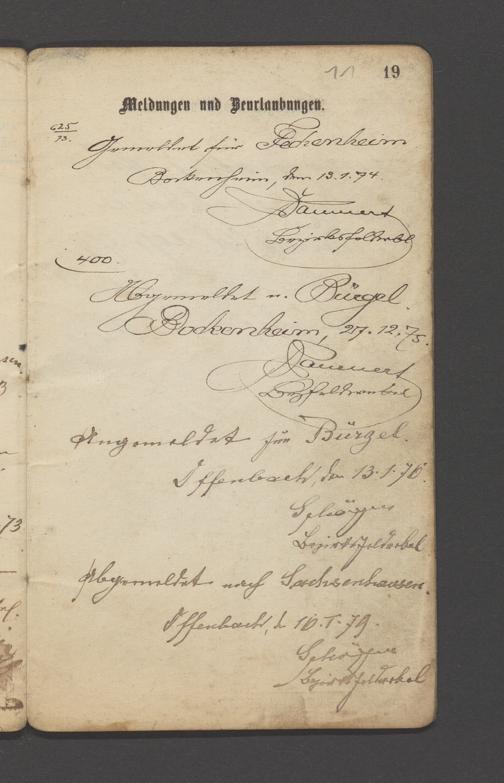 19
Meldungen und Beurlaubungen.
625/73.
Gemeldet für Fechenheim
Bockenheim, den 13.1.74
Dammert
Bezirksfeldwebel
400.
Abgemeldet n. Bürgel.
Bockenheim, 27.12.75.
Dammert
Bezfeldwebel
Angemeldet für Bürgel.
Offenbach, den 13.1.76.
Bezirksfeldwebel
Abgemeldet nach Sachsenhausen.
Offenbach, d. 10.I.79.
Bezirksfeldwebel